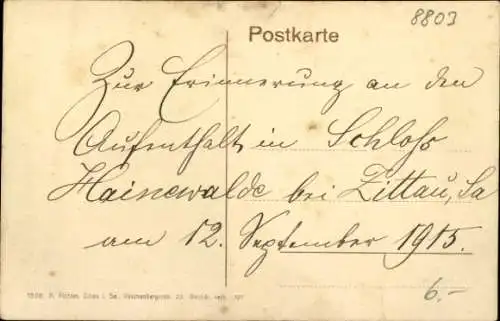 8803
Postkarte
Zur Erinnerung an den
Aufenthalt in Schloss
Hainewalde bei Zittau, Sa
am 12. September 1915.
6.-